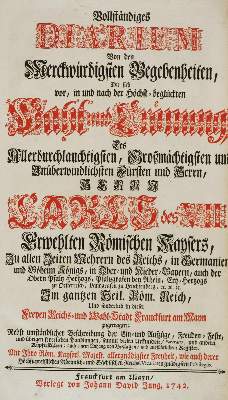 Vollständiges
DIARIUM
Von den
Merckwürdigsten Begebenheiten,
Die sich
vor, in und nach der Höchst-beglückten
Wahl und Crönung
Des
Allerdurchlauchtigsten, Großmächtigsten und
Unüberwindlichsten Fürsten und Herrn,
HERRN
CARLS des VII.
Erwehlten Römischen Kaysers,
Zu allen Zeiten Mehrern des Reichs, in Germanien
und Böheim Königs, in Ober- und Nieder-Bayern, auch der
Obern Pfaltz Hertzogs, Pfaltzgrafen bey Rhein, Ertz-Hertzogs
zu Oesterreich, Landgrafens zu Leuchtenberg, 
Im gantzen Heil. Röm. Reich,
Und sonderlich in dieser
Freyen Reichs- und Wahl-Stadt Franckfurt am Mayn
zugetragen;
Nebst umständlicher Beschreibung der Ein- und Aufzüge,
Mit Ihro Röm. Kayserl. Majest. allergnädigster Freyheit, wie auch derer
Franckfurt am Mayn,
Verlegt von Johann David Jung, 1742.